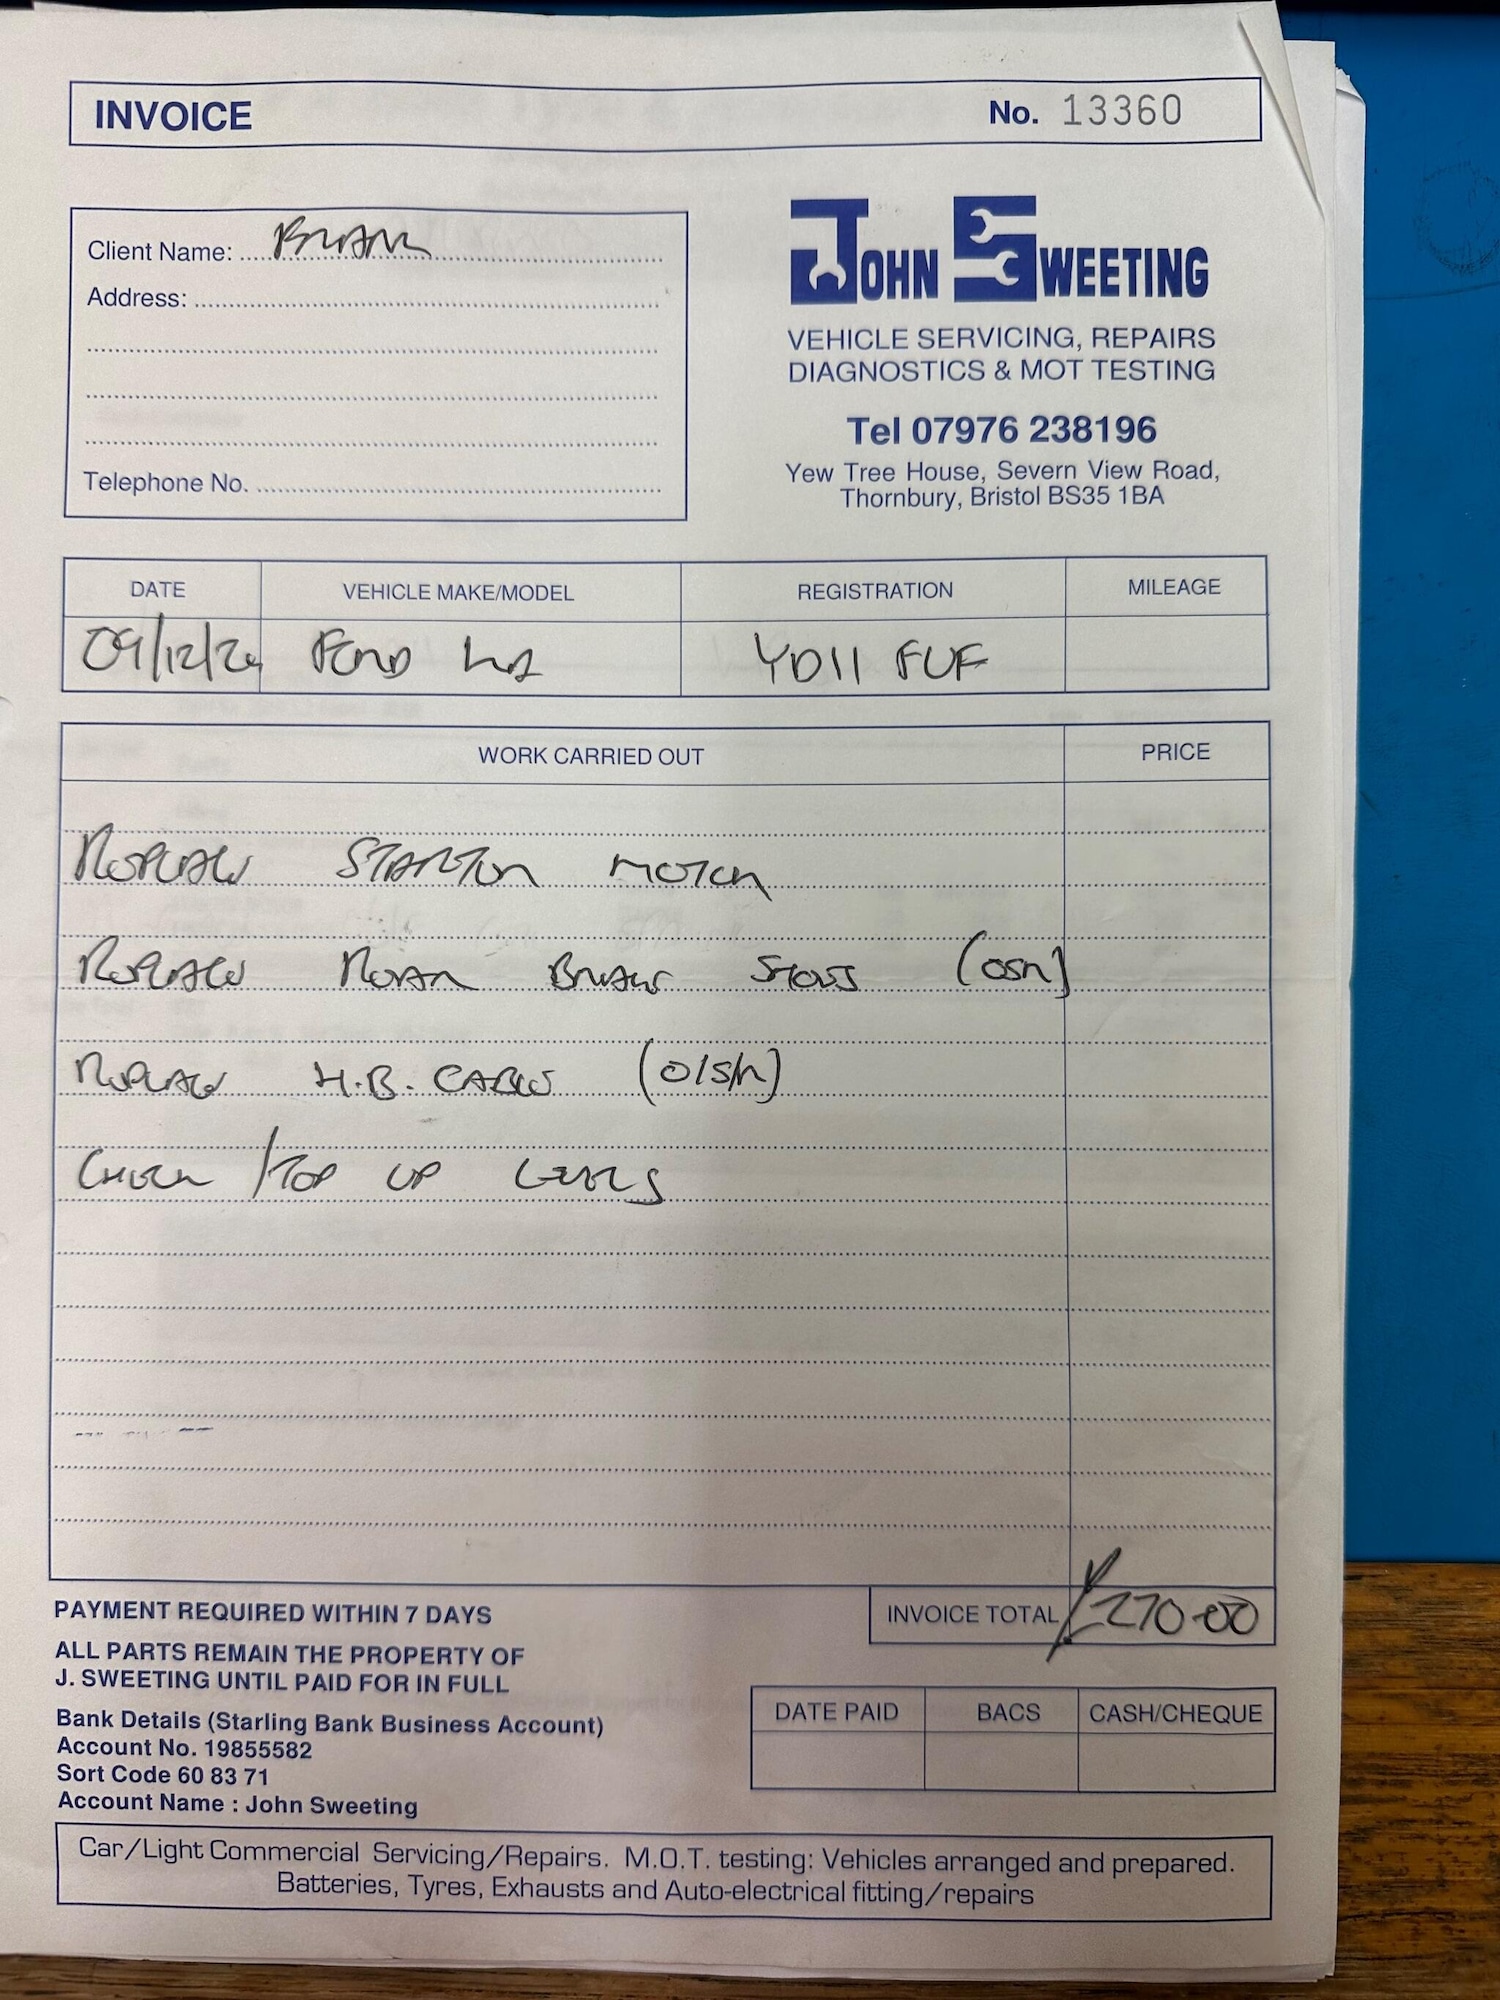 INVOICE No. 13360
Client Name: BRIAN
Address:
Telephone No.
JOHN SWEETING
VEHICLE SERVICING, REPAIRS
DIAGNOSTICS & MOT TESTING
Tel 07976 238196
Yew Tree House, Severn View Road,
Thornbury, Bristol BS35 1BA
DATE VEHICLE MAKE/MODEL REGISTRATION MILEAGE
09/12/24 FORD YD11 FUF
WORK CARRIED OUT PRICE
REPLACE STARTER MOTOR
REPLACE REAR BRAKE SHOES (OSR)
REPLACE H.B. CABLE (O/S/R)
CHECK / TOP UP LEVELS
PAYMENT REQUIRED WITHIN 7 DAYS
INVOICE TOTAL £270-00
ALL PARTS REMAIN THE PROPERTY OF
J. SWEETING UNTIL PAID FOR IN FULL
Bank Details (Starling Bank Business Account)
Account No. 19855582
Sort Code 60 83 71
Account Name : John Sweeting
DATE PAID BACS CASH/CHEQUE
Car/Light Commercial Servicing/Repairs. M.O.T. testing: Vehicles arranged and prepared.
Batteries, Tyres, Exhausts and Auto-electrical fitting/repairs